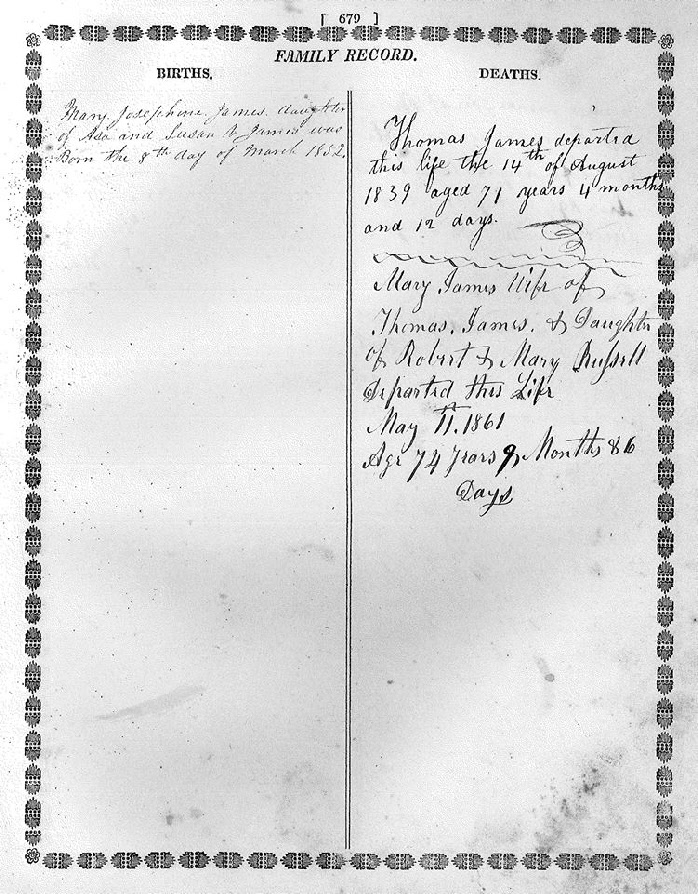 [ 679 ]
FAMILY RECORD.
BIRTHS.
Mary Josephine James daughter
of Ada and Susan James was
Born the 8th day of March 1852.
DEATHS.
Thomas James departed
this life the 14th of August
1839 aged 71 years 4 months
and 12 days.
Mary James Wife of
Thomas James, & Daughter
of Robert & Mary Russell
Departed this Life
May 11th. 1861
Age 74 Years 9 Months & 6
Days